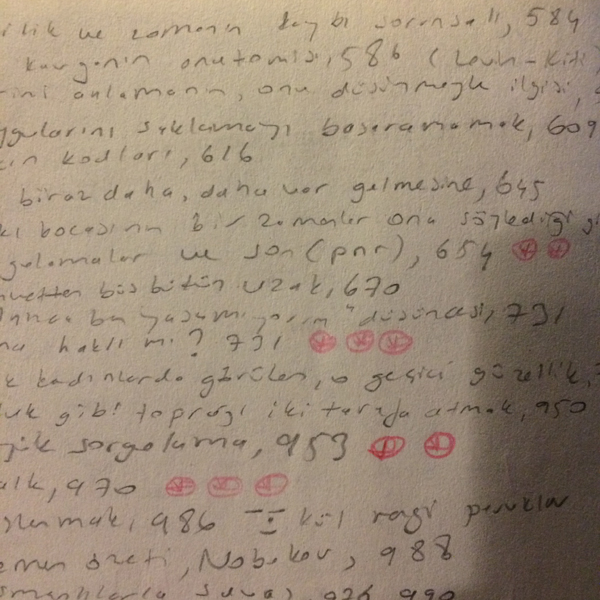 ilik ve zamanın kaybı sorunsalı, 584
kurgunun anatomisi, 586 (Levin-Kiti)
rini anlamanın, onu düşünmeyle ilgisi,
ygularını saklamayı başaramamak, 609
kodları, 616
biraz daha, daha var gelmesine, 645
ki kocasının bir zamanlar ona söylediği
ve son (pnr), 654
büsbütün uzak, 670
yaşamıyorum" düşüncesi, 731
haklı mı? 731
k kadınlarda görülen, o geçici güzellik,
luk gibi toprağı iki tarafa atmak, 950
sorgulama, 953
alk, 970
986 kül rengi peruklar
özeti, Nabokov, 988
savaş, 990